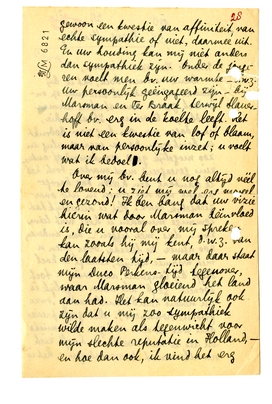 28
LM 6821
gewoon een kwestie van affiniteit, van
echte sympathie of niet, daarmee uit.
En uw houding kan mij niet anders
dan sympathiek zijn. Onder de jonge-
ren voelt men bv. uw warmte – d.w.z.
uw persoonlijk geëngageerd zijn – bij
Marsman en Ter Braak, terwijl Slauer-
hoff bv. erg in de koelte leeft. Het
is niet een kwestie van lof of blaam,
maar van persoonlijke inzet; u voelt
wat ik bedoel.
Over mij bv. bent u nog altijd véél
te lovend; u ziet mij veel erg moreel
en gezond! Ik ben bang dat uw vizie
hierin wat door Marsman beïnvloed
is, die u vooral over mij spreken
kan zooals hij mij kent, d.w.z. van
den laatsten tijd, – maar daar staat
mijn Duco Perkens-tijd tegenover,
waar Marsman gloeiend het land
aan had. Het kan natuurlijk ook
zijn dat u mij zoo sympathiek
wilde maken als tegenwicht voor
mijn slechte reputatie in Holland, –
en hoe dan ook, ik vind het erg